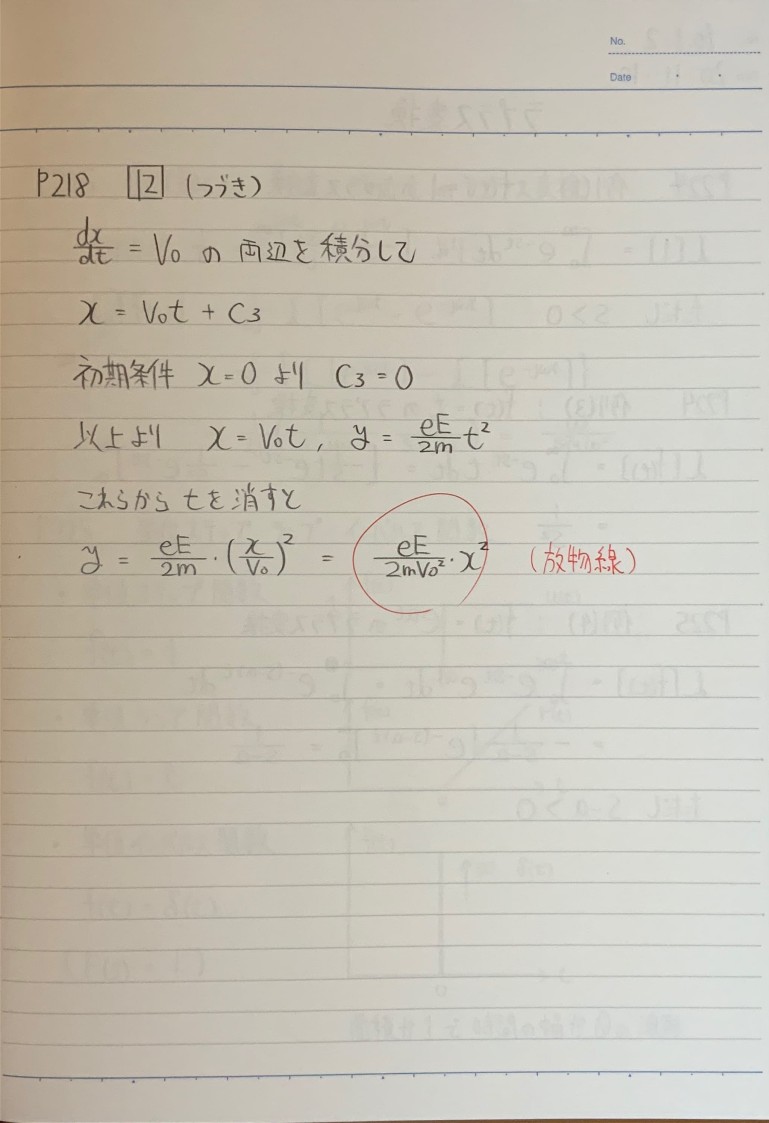 No.
Date
P218 12 (つづき)
dx/dt = V₀ の 両辺を積分して
x = V₀t + C₃
初期条件 x=0 より C₃=0
以上より x = V₀t, y = eE/2m t²
これらから tを消すと
y = eE/2m・(x/V₀)² = eE/2mV₀²・x² (放物線)